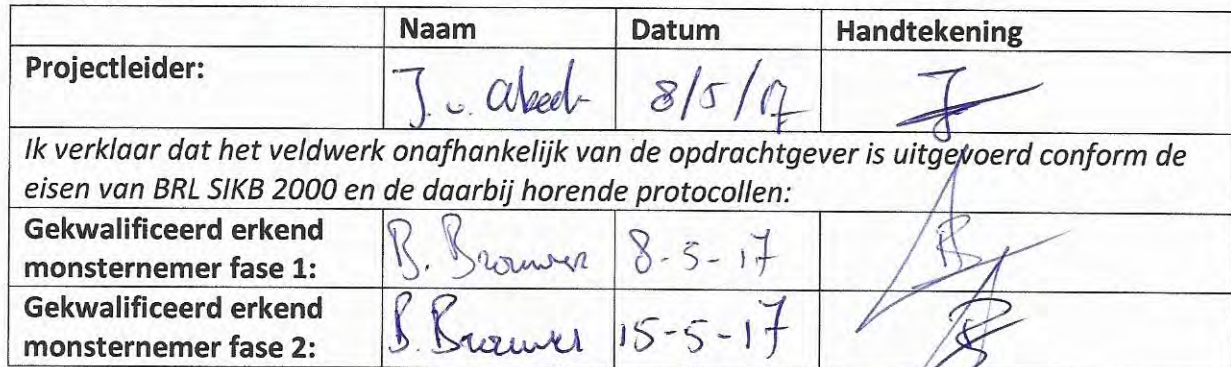 Naam Datum Handtekening
Projectleider: J. v. 8/5/17
Ik verklaar dat het veldwerk onafhankelijk van de opdrachtgever is uitgevoerd conform de
eisen van BRL SIKB 2000 en de daarbij horende protocollen:
Gekwalificeerd erkend
monsternemer fase 1: B. Brouwer 8-5-17
Gekwalificeerd erkend
monsternemer fase 2: B. Brouwer 15-5-17